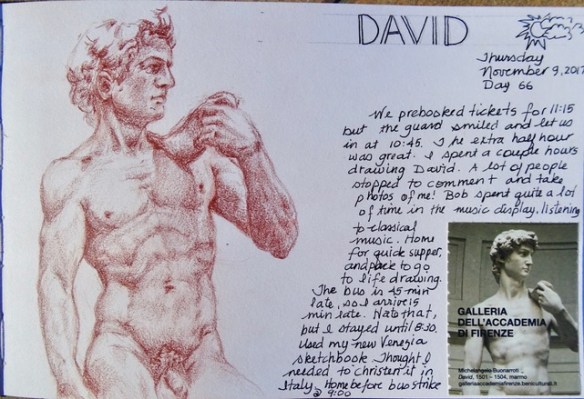 DAVID
Thursday
November 9, 2017
Day 66
We prebooked tickets for 11:15
but the guard smiled and let us
in at 10:45. The extra half hour
was great. I spent a couple hours
drawing David. A lot of people
stopped to comment and take
photos of me! Bob spent quite a lot
of time in the music display, listening
to classical
music. Home
for quick supper,
and back to go
to life drawing.
The bus is 15 min
late, so I arrive 15
min late. Nats that,
but I stayed until 8:30.
Used my new Venezia
sketchbook. Thought I
needed to christen it in
Italy. Home before bus strike
@ 9:00
GALLERIA
DELL'ACCADEMIA
DI FIRENZE
Michelangelo Buonarroti _
David, 1501 – 1504, marmo
galleriaaccademiafirenze.beniculturali.it